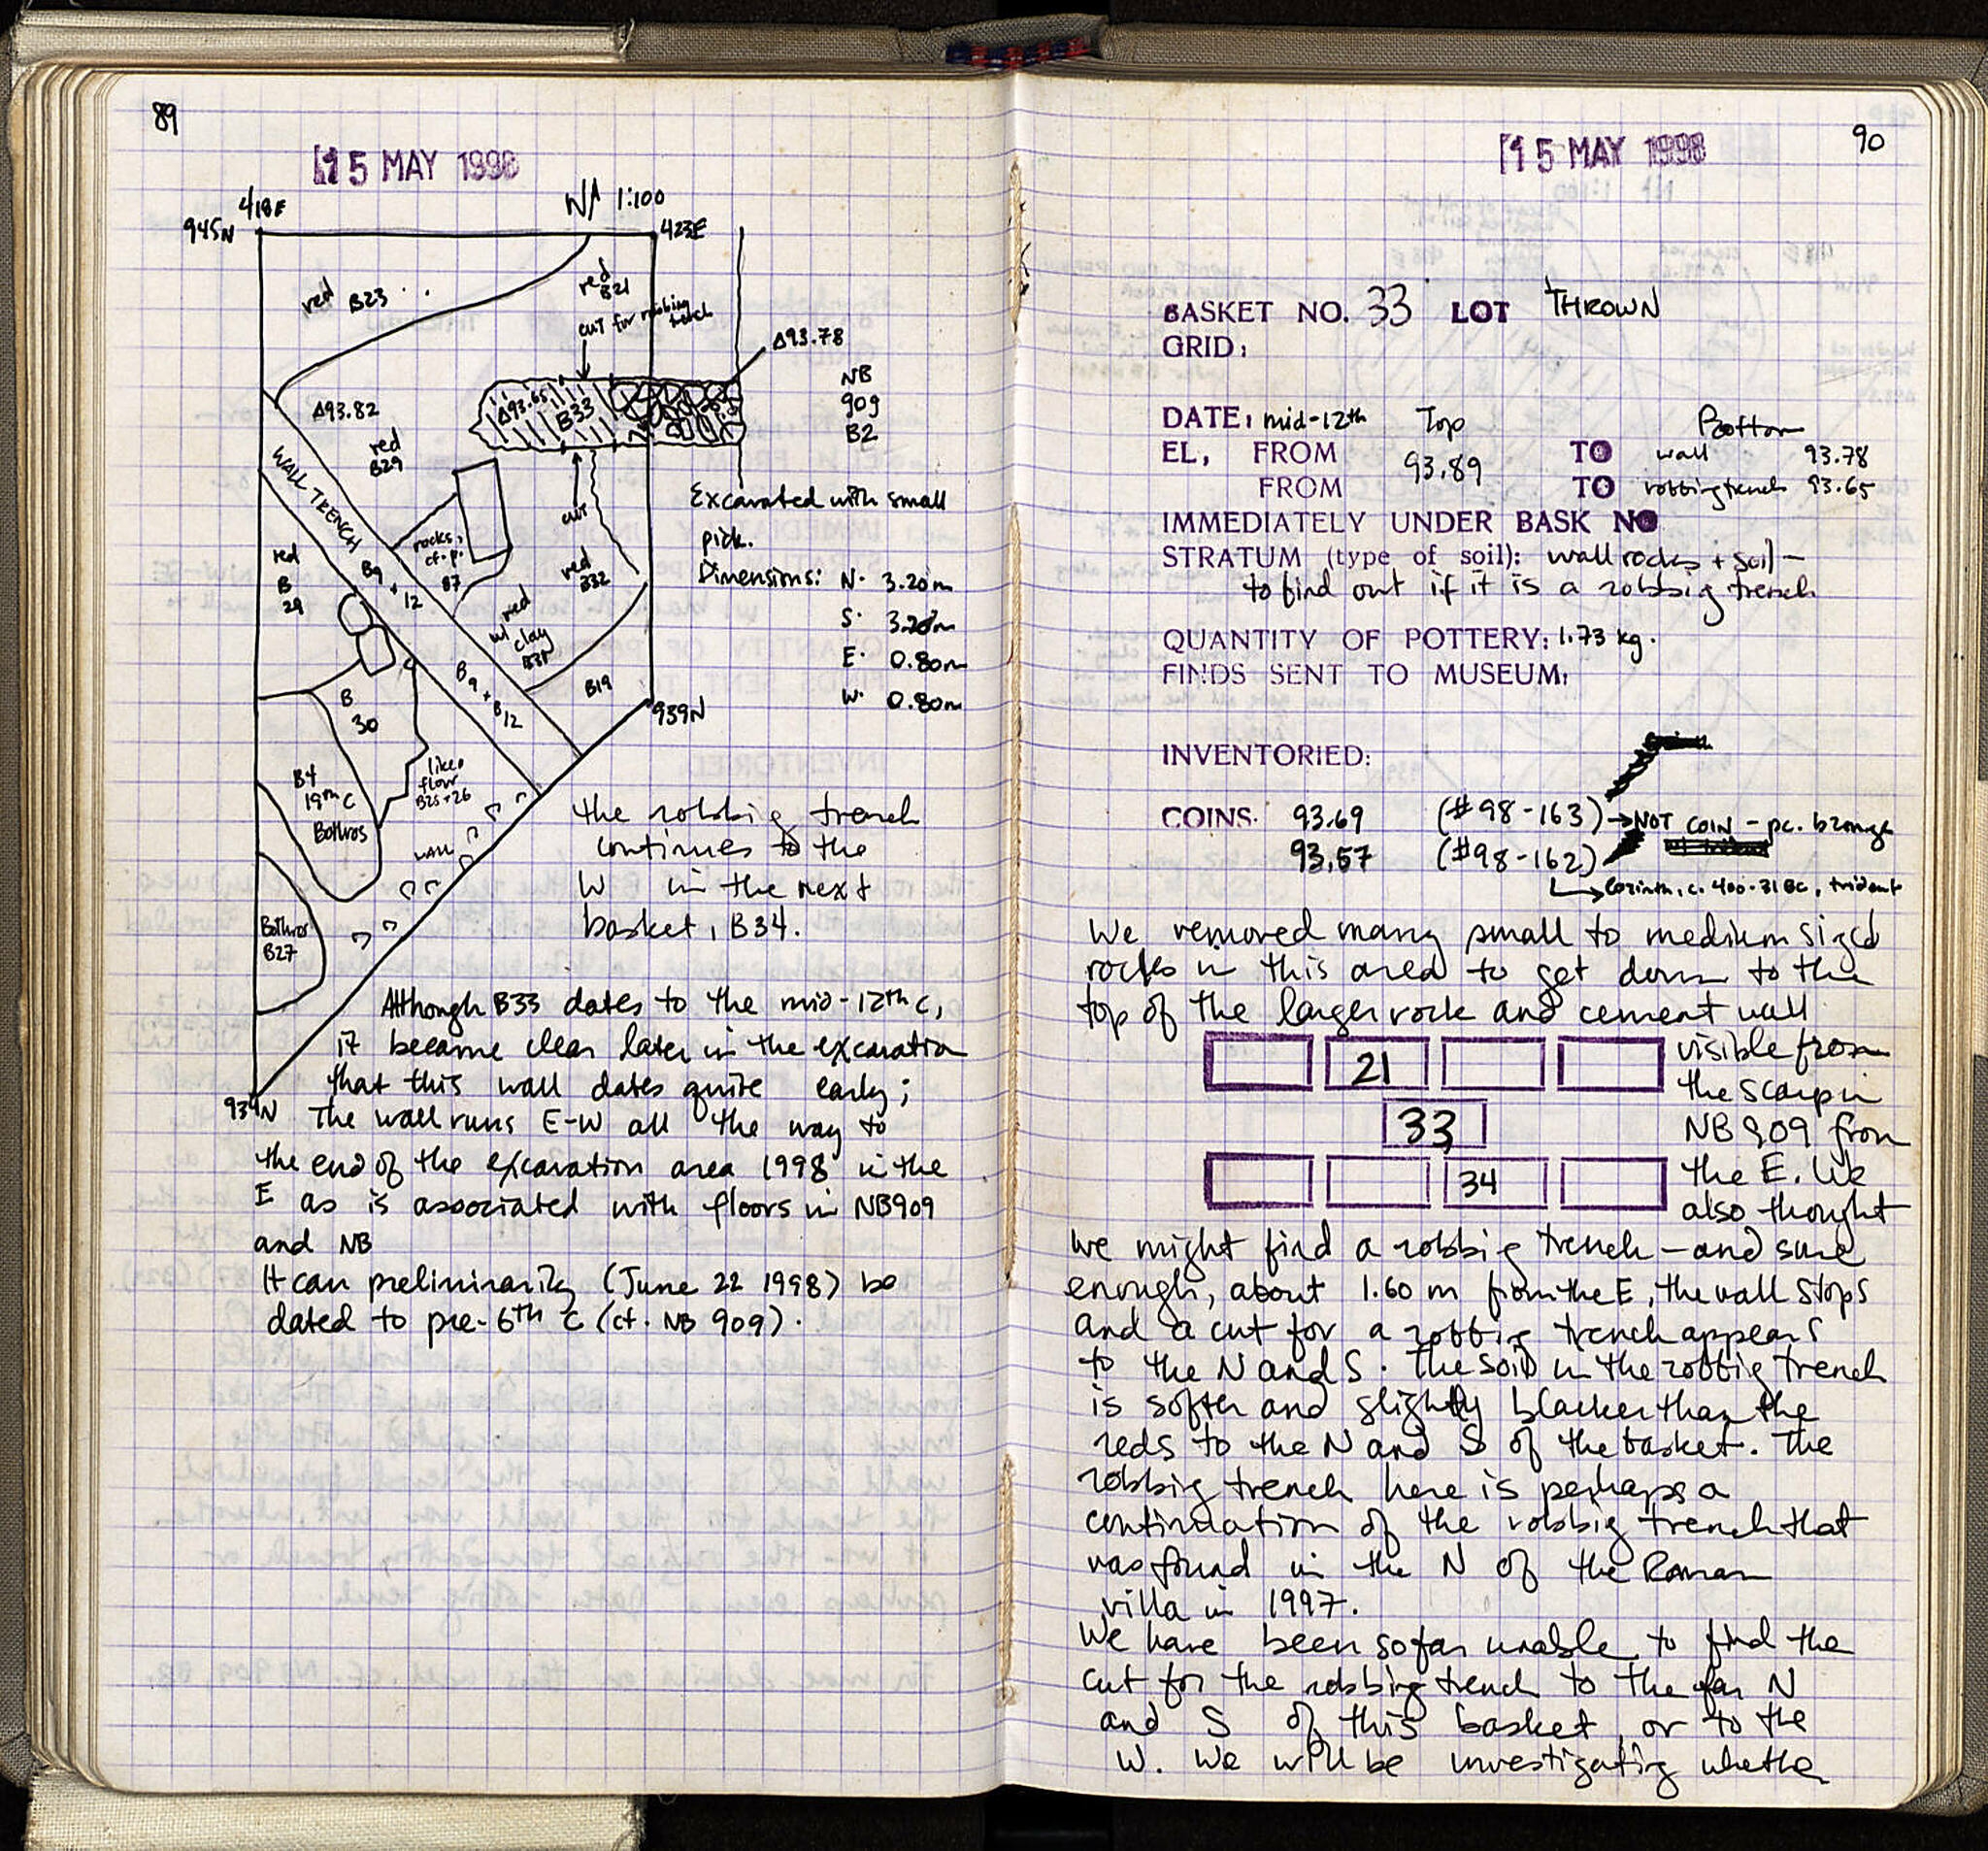 89
15 MAY 1998
418E
N 1:100
945N
423E
red B23
red
B21
cut for robbing
trench
Δ93.78
NB
909
B2
Δ93.65
B33
Δ93.82
red
B29
WALL TRENCH
B9
+
12
rocks,
cf. p.
87
cut
red
B32
red
w/ clay
B31
red
B
29
Excavated with small
pick.
Dimensions: N. 3.20m
S. 3.20m
E. 0.80m
W. 0.80m
B19
939N
B9
+
B12
B
30
B4
19th C
Bothros
like
floor
B25+26
WALL
Bothros
B27
934N
the robbing trench
continues to the
W in the next
basket, B34.
Although B33 dates to the mid-12th C,
it became clear later in the excavation
that this wall dates quite early;
The wall runs E-W all the way to
the end of the excavation area 1998 in the
E as is associated with floors in NB909
and NB
It can preliminarily (June 22 1998) be
dated to pre-6th C (cf. NB 909).
90
15 MAY 1998
BASKET NO. 33 LOT THROWN
GRID:
DATE: mid-12th Top Bottom
EL, FROM 93.89 TO wall 93.78
FROM TO robbing trench 93.65
IMMEDIATELY UNDER BASK NO
STRATUM (type of soil): wall rocks + soil -
to find out if it is a robbing trench
QUANTITY OF POTTERY: 1.73 kg.
FINDS SENT TO MUSEUM:
INVENTORIED:
COINS: 93.69 (#98-163) → NOT COIN - pc. bronze
93.57 (#98-162)
→ Corinth, c. 400-31 BC, trident
We removed many small to medium sized
rocks in this area to get down to the
top of the larger rock and cement wall
visible from
21
the scarp in
33
NB 909 from
34
the E. We
also thought
we might find a robbing trench - and sure
enough, about 1.60 m from the E, the wall stops
and a cut for a robbing trench appears
to the N and S. The soil in the robbing trench
is softer and slightly blacker than the
reds to the N and S of the basket. The
robbing trench here is perhaps a
continuation of the robbing trench that
was found in the N of the Roman
villa in 1997.
We have been so far unable to find the
cut for the robbing trench to the far N
and S of this basket, or to the
W. We will be investigating whether